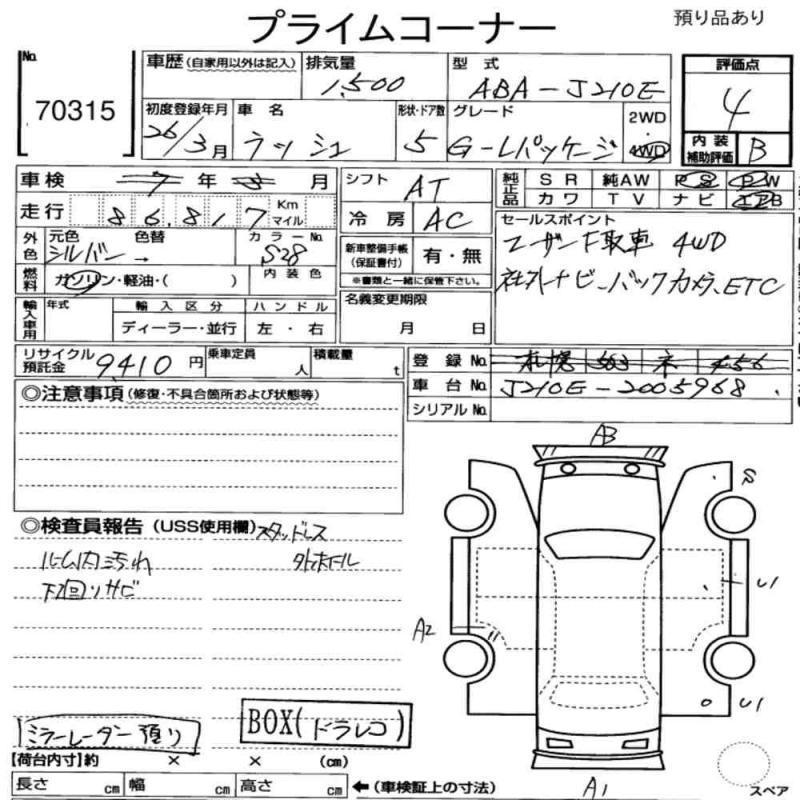 プライムコーナー
預り品あり
No.
70315
車歴 (自家用以外は記入)
排気量
1,500
型式
ABA-J210E
評価点
4
初度登録年月
26/3月
車名
ラッシュ
形状・ドア数
5
グレード
G-Lパッケージ
2WD
・
4WD
内装
補助評価
B
車検 7年3月
シフト
AT
純正品
SR 純AW PS PW
カワ TV ナビ エアB
走行 86,817 Km マイル
冷房
AC
セールスポイント
ユーザー下取車 4WD
社外ナビ、バックカメラ、ETC
外色
元色
色替
シルバー →
カラーNo.
S28
新車整備手帳
(保証書付)
有・無
※書類と一緒に保管下さい。
燃料
ガソリン・軽油・( )
内装色
名義変更期限
月 日
輸入車用
年式
輸入区分
ディーラー・並行
ハンドル
左・右
リサイクル
預託金
9410円
乗車定員
人
積載量
t
登録No.
札幌 503 ネ 456
車台No.
J210E-2005968
シリアルNo.
◎注意事項 (修復・不具合箇所および状態等)
◎検査員報告 (USS使用欄)
スタッドレス
外ホイール
ルーム内汚れ
下廻りサビ
AB
S
U1
A2
U1
A1
ミラーレーダー預り
BOX(ドラレコ)
【荷台内寸】約 × × (cm)
長さ cm 幅 cm 高さ cm
←(車検証上の寸法)
スペア